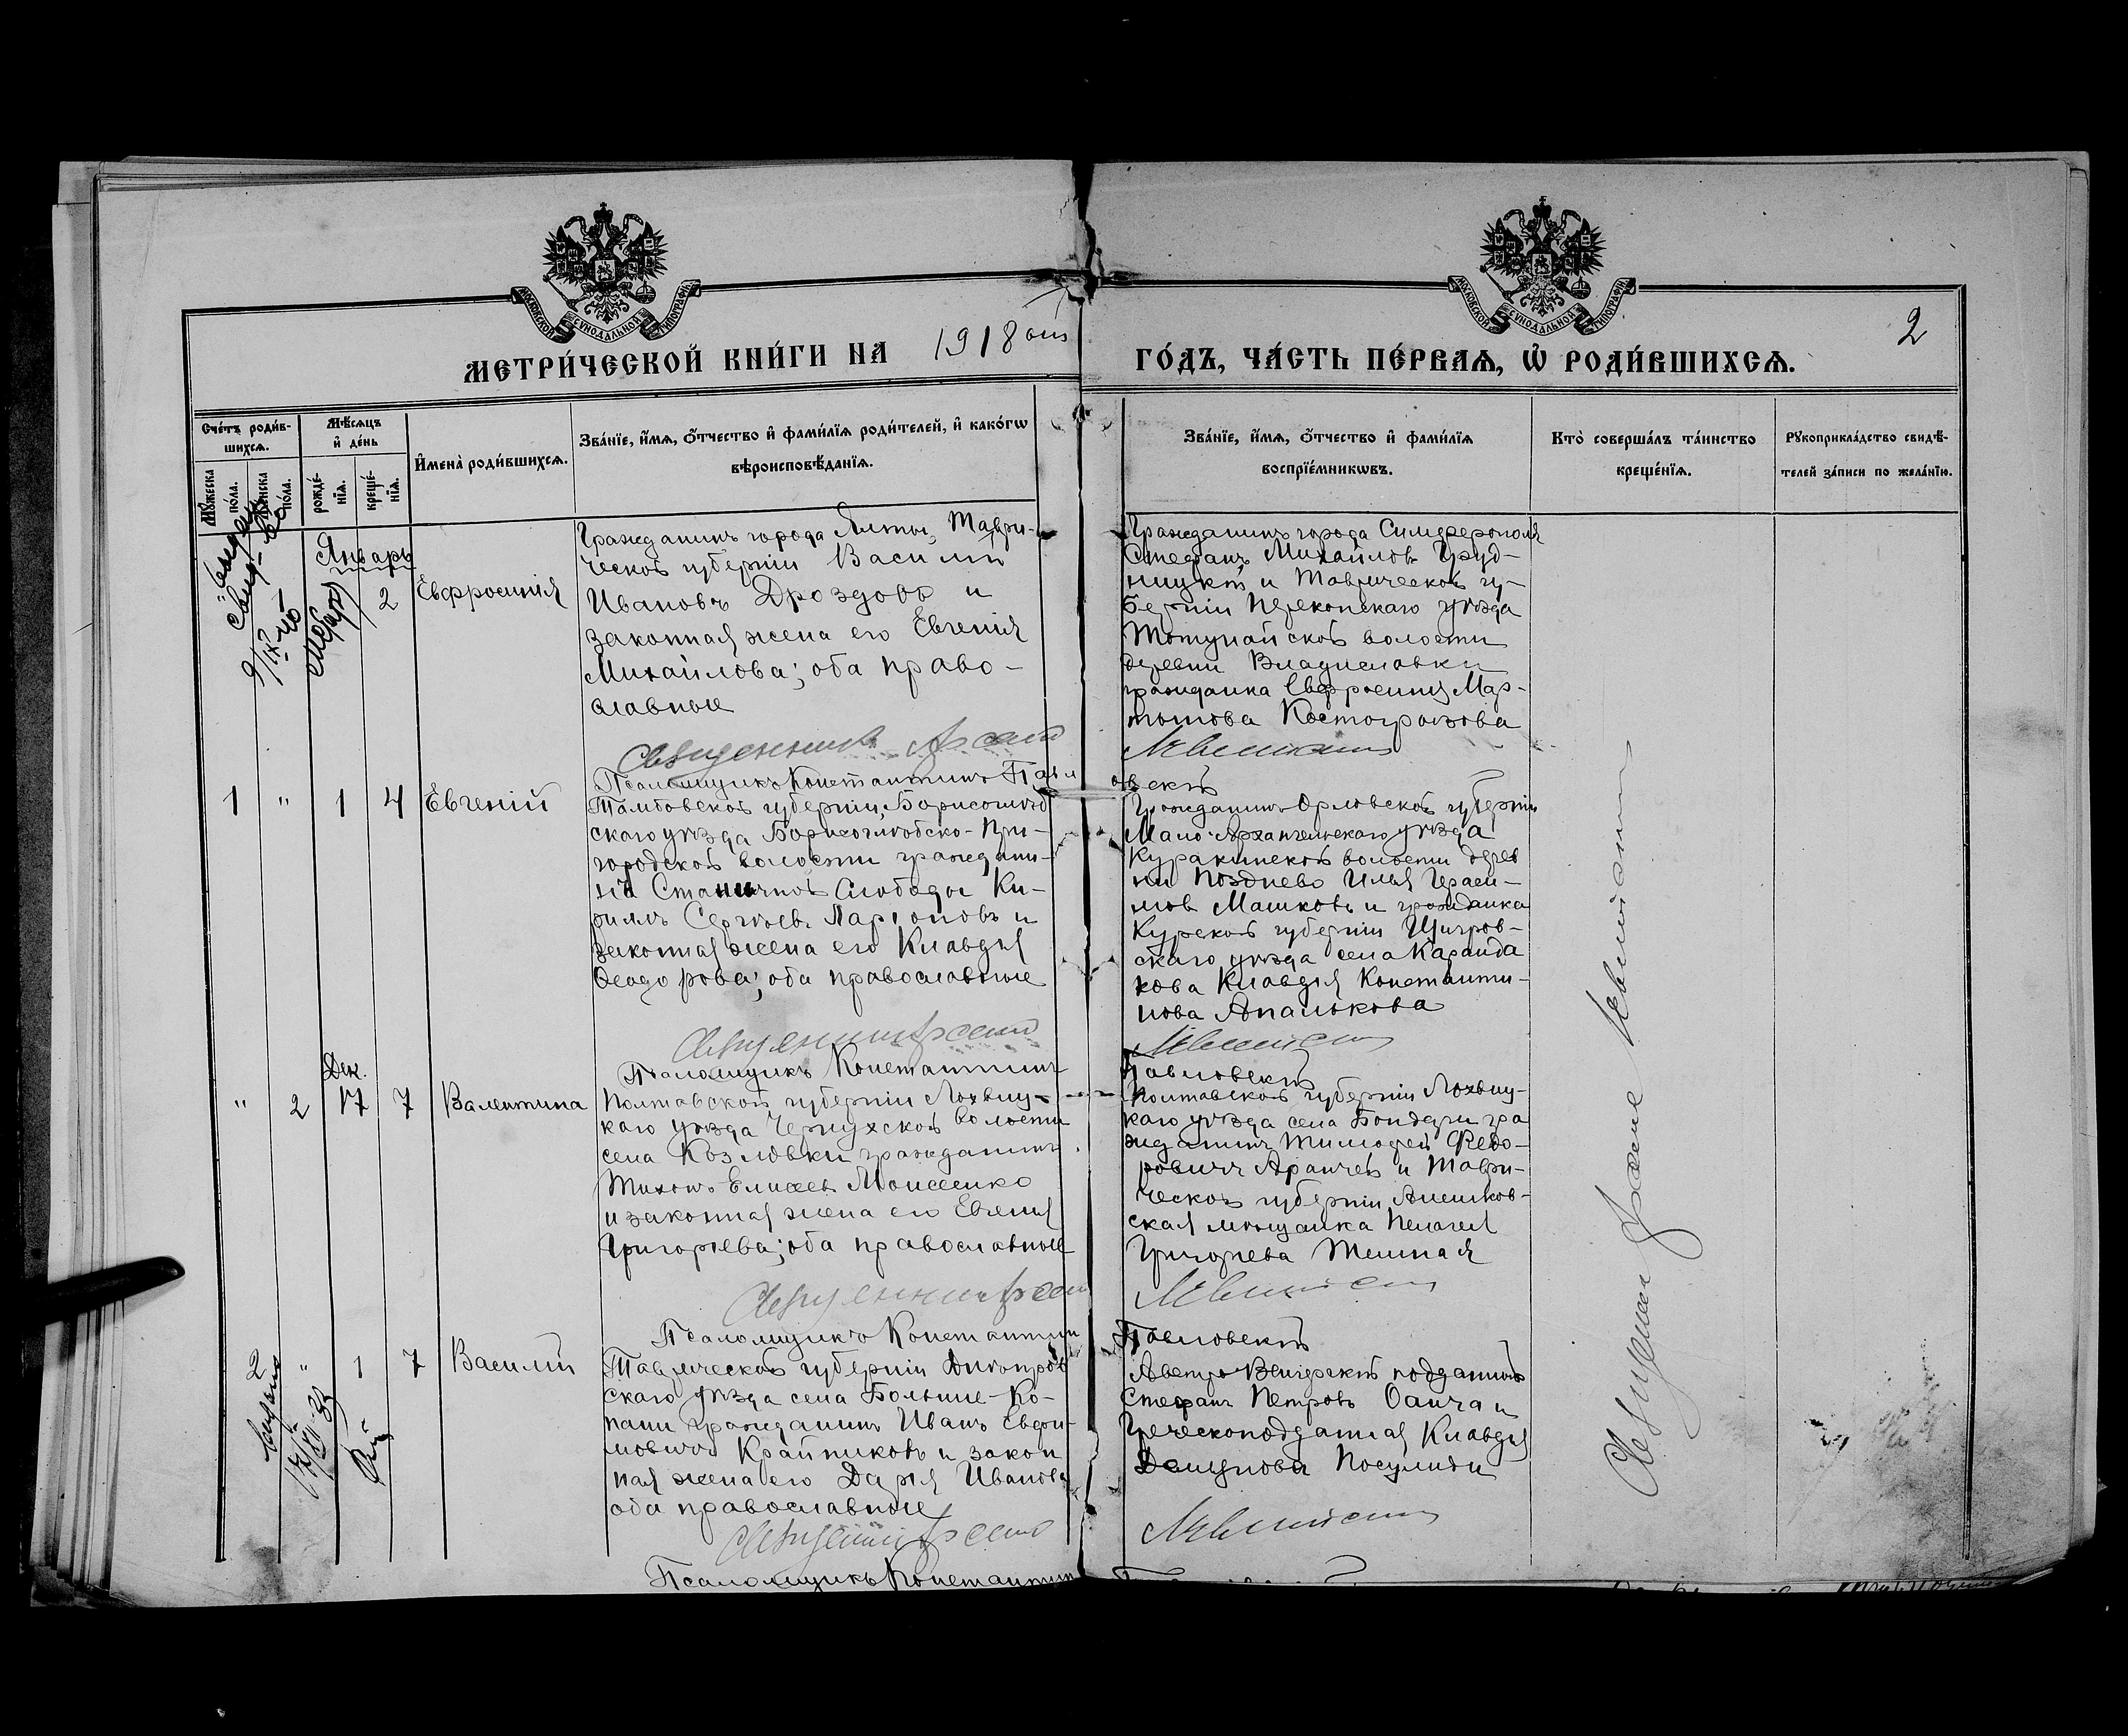 МОСКОВСКОЙ СУНОДАЛЬНОЙ ТИПОГРАФІИ
МОСКОВСКОЙ СУНОДАЛЬНОЙ ТИПОГРАФІИ
2
МЕТРИ́ЧЕСКОЙ КНИ́ГИ НА 1918 ГО́ДЪ, ЧА́СТЬ ПЕ́РВАѦ, Ѡ҆ РОДИ́ВШИХСѦ.
Сче́тъ роди́в-
шихсѧ.
Мѹжеска
по́ла.
Же́нска
по́ла.
Мѣ́сѧцъ
и҆ де́нь
рожде́-
нїѧ.
креще́-
нїѧ.
И҆мена̀ роди́вшихсѧ.
Зва́нїе, и҆́мѧ, ѻ҆́тчество и҆ фами́лїѧ роди́телей, и҆ како́гѡ
вѣроисповѣ́данїѧ.
Зва́нїе, и҆́мѧ, ѻ҆́тчество и҆ фами́лїѧ
воспрїе́мникѡвъ.
Кто̀ соверша́лъ та́инство
креще́нїѧ.
Рѹкоприкла́дство свидѣ́-
телей за́писи по жела́нїю.
Январь
2
Евфросинія
Гражданинъ города Ялты, Таври-
ческой губерніи Василій
Ивановъ Дроздовъ и
законная жена его Евгенія
Михайлова; оба право-
славные
Гражданинъ города Симферополя
Стефанъ Михайловъ Груд-
ницкій и Таврической гу-
берніи Перекопскаго уѣзда
Тотунайской волости
деревни Владиславки
гражданка Евфросинія Мар-
тынова Костогрызова
Священникъ Арсеній
Псаломщикъ Константинъ Павловскій
1 " 1 4 Евгеній
Тамбовской губерніи, Борисоглѣб
скаго уѣзда Борисоглѣбско-При-
городской волости граждани-
нъ Станичной слободы Ки-
риллъ Сергѣевъ Ларіоновъ и
законная жена его Клавдія
Ѳеодорова; оба православные
Гражданинъ Орловской губерніи
Мало-Архангельскаго уѣзда
Куракинской волости дерев
ни Позднево Илья Гераси-
мов Машковъ и гражданка
Курской губерніи Щигров-
скаго уѣзда села Каранда
кова Клавдія Константи-
нова Апалькова
Священникъ Арсеній
Псаломщикъ Константинъ Павловскій
" 2 Дек. 17 7 Валентина
Полтавской губерніи Лохвиц-
каго уѣзда Чернухской волости
села Козловки гражданинъ
Тихонъ Елисеев Моисеенко
и законная жена его Евгенія
Григорьева; оба православные
Полтавской губерніи Лохвиц-
каго уѣзда села Бондари гра
жданинъ Тимофей Федо-
ровичъ и Таври-
ческой губерніи Алешков-
ская мѣщанка Пелагея
Григорьева
Священникъ Арсеній
Псаломщикъ Константинъ Павловскій
2 " 1 7 Василій
Таврической губерніи Днѣпров
скаго уѣзда села Больше-Ко-
пани гражданинъ Иванъ Евдоки-
мовичъ Крайниковъ и закон
ная жена его Дарія Иванова
оба православные
Австро-Венгерскій подданный
Стефанъ Петровъ и
Греческоподданная Клавдія
Священникъ Арсеній
Псаломщикъ Константинъ
Священникъ Арсеній